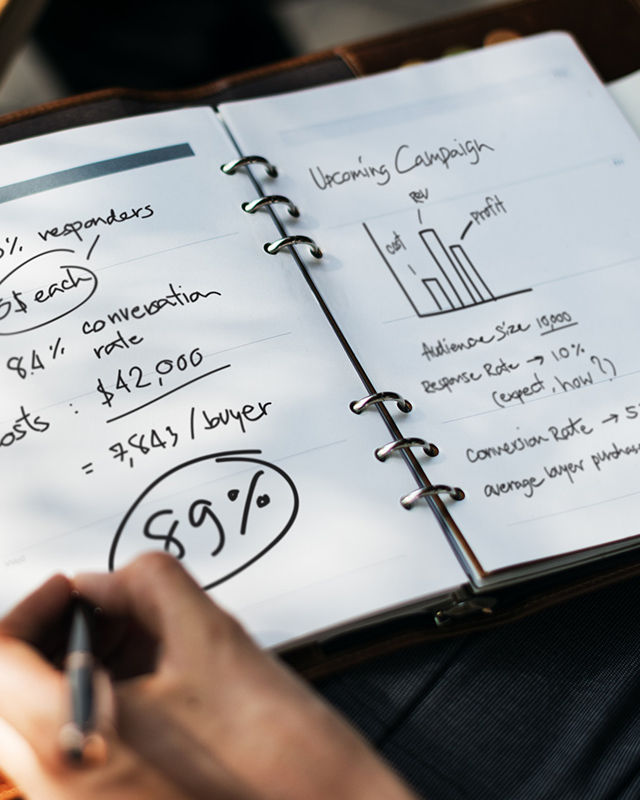 % responders
5$ each
84% conversation
rate
osts : $42,000
= 7,843 / buyer
89%
Upcoming Campaign
rev
cost
profit
Audience Size 10,000
Response Rate → 10%
(expect, how?)
Conversion Rate → 5
average buyer purchas